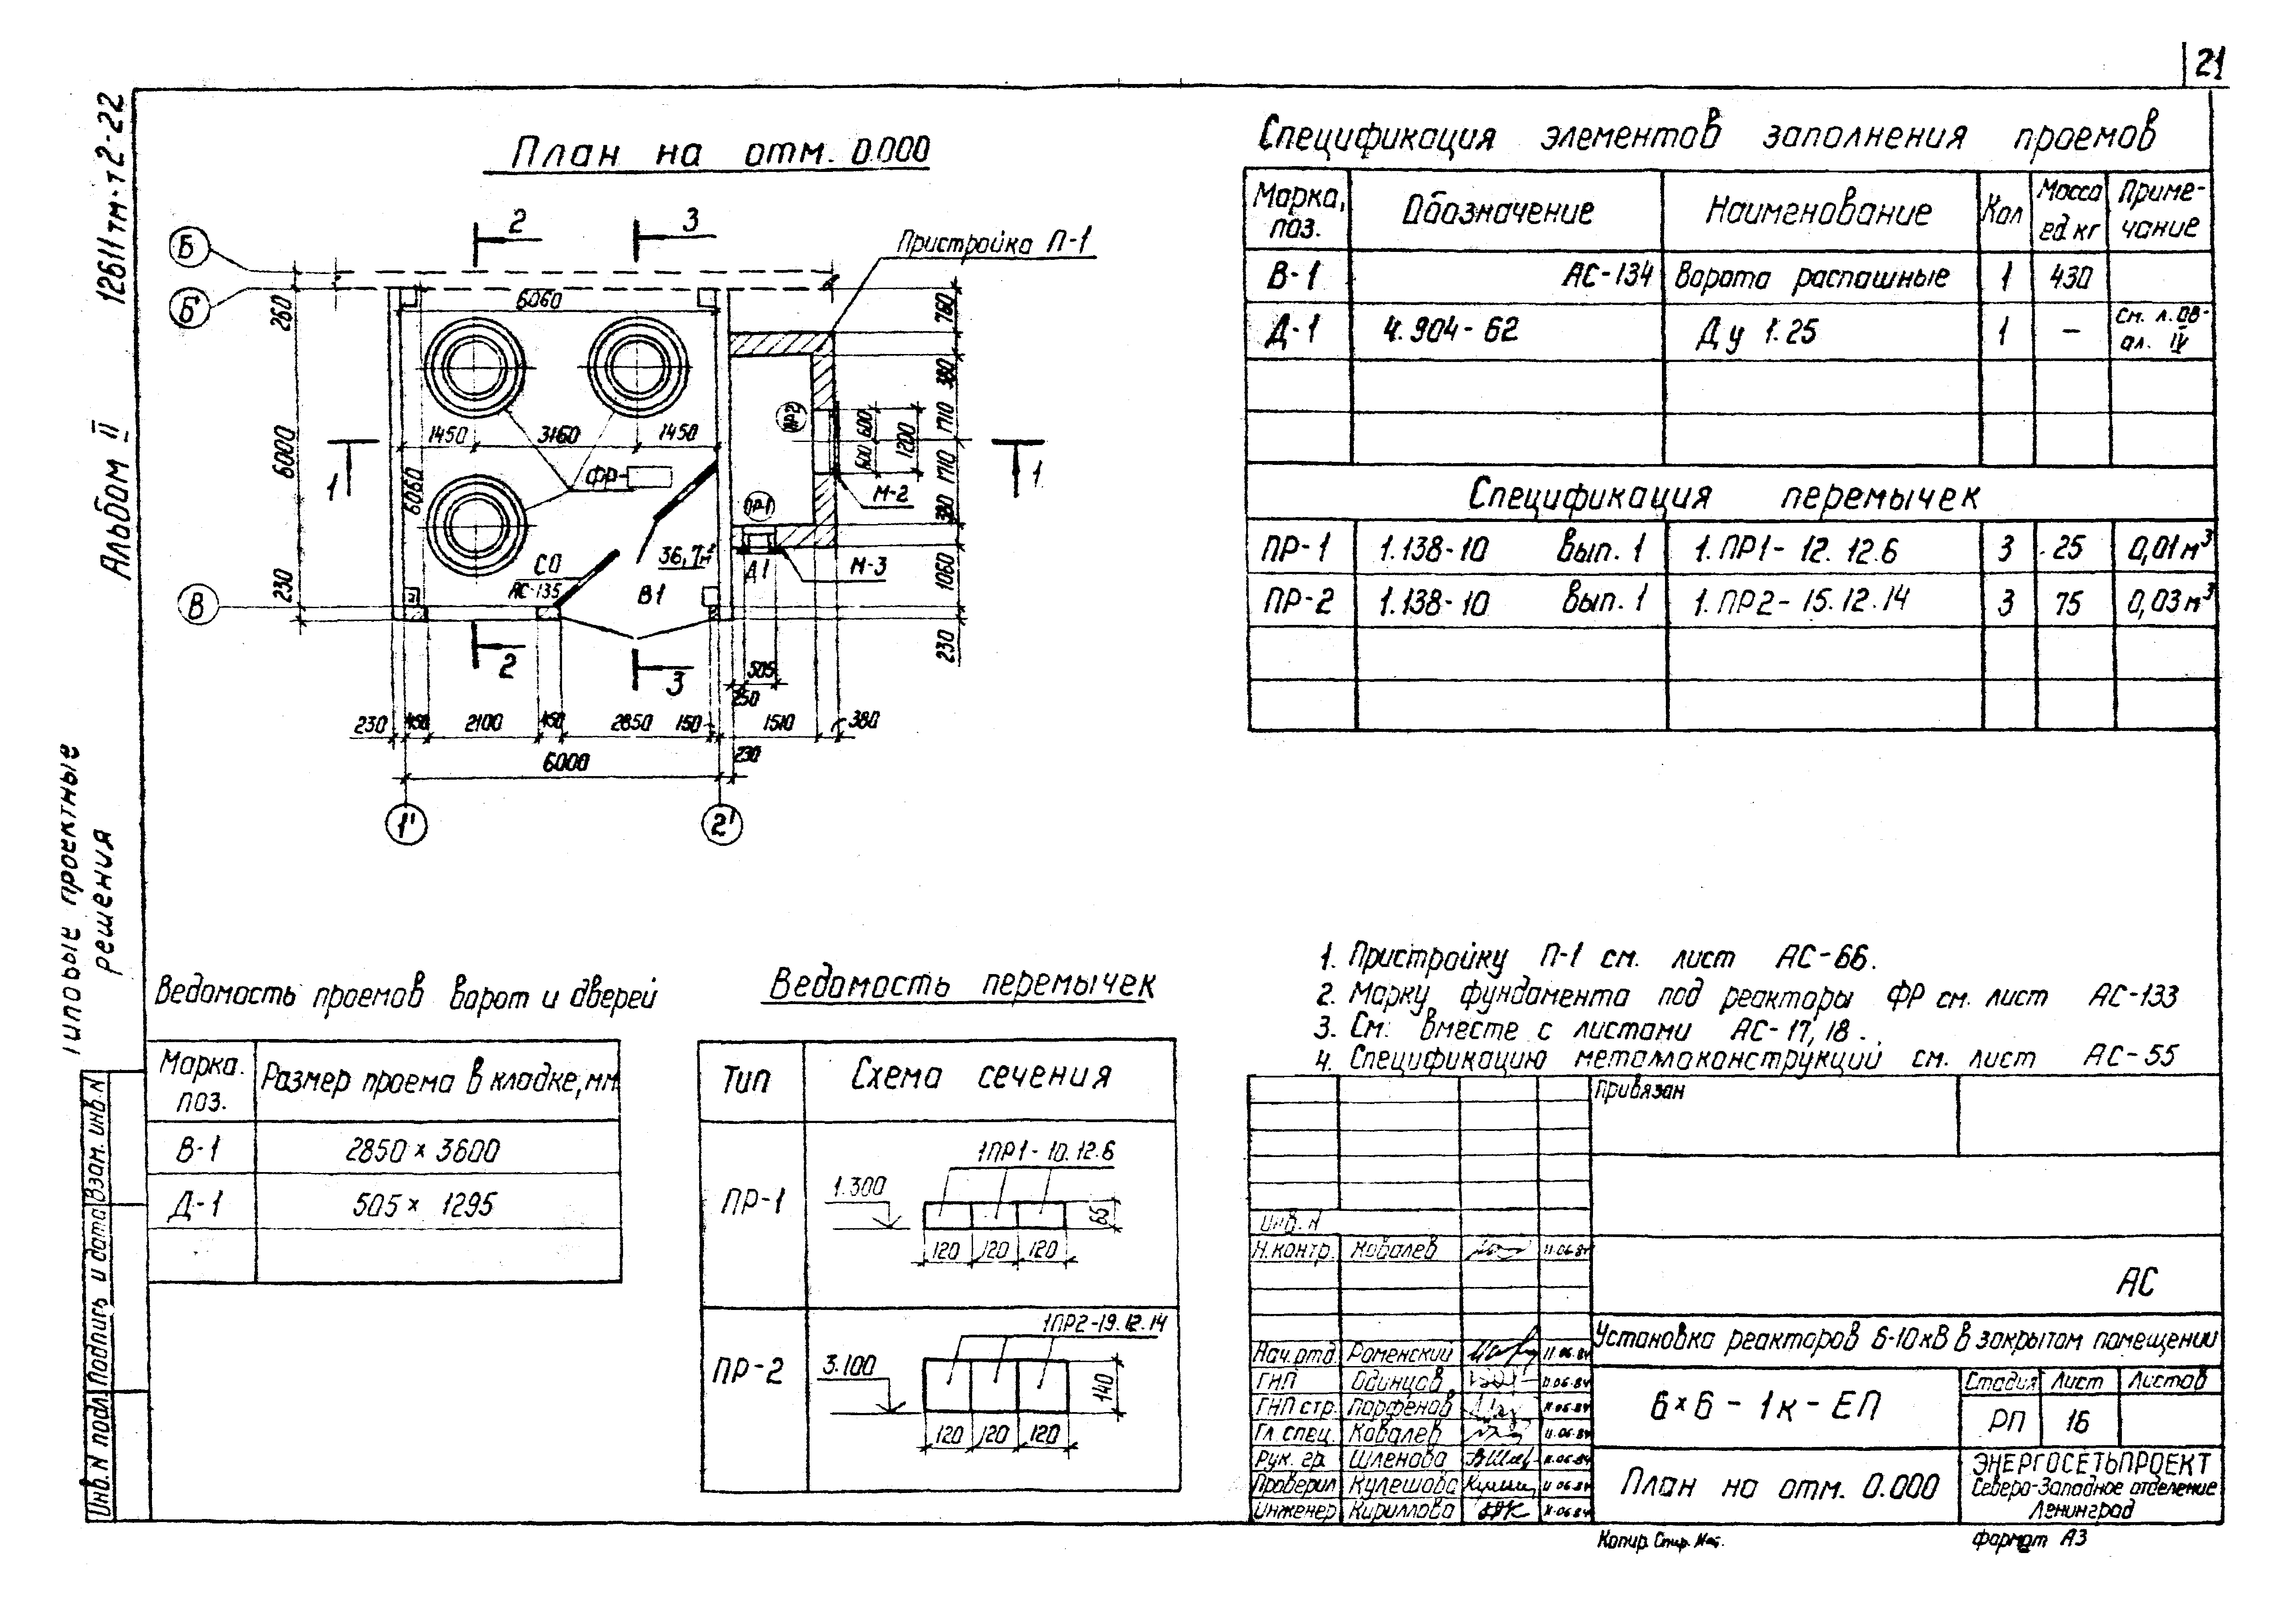 21
12611тм-т2-22
Альбом II
Типовые проектные
решения
План на отм. 0.000
2
3
Б
Б'
В
Пристройка П-1
6060
260
6000
230
760
380
1710
1710
380
1060
230
1450
3160
1450
600
600
1200
1
1
6060
ФР-
ПР2
ПР1
М-2
М-3
СО
АС-135
36,7м²
В1
Д1
2
3
505
250
230
450
2100
450
2850
150
1510
380
6000
230
1'
2'
Спецификация элементов заполнения проемов
Марка, поз. Обозначение Наименование Кол Масса ед кг Приме-чание
В-1 АС-134 Ворота распашные 1 430
Д-1 4.904-62 Ду 1.25 1 – См. л.ОВ- ал. IV
Спецификация перемычек
ПР-1 1.138-10 Вып. 1 1.ПР1-12.12.6 3 25 0,01м³
ПР-2 1.138-10 Вып. 1 1.ПР2-15.12.14 3 75 0,03м³
Ведомость проемов ворот и дверей
Марка. поз. Размер проема в кладке, мм
В-1 2850 × 3600
Д-1 505 × 1295
Ведомость перемычек
Тип Схема сечения
1ПР1-10.12.6
ПР-1 1.300 65
120 120 120
1ПР2-19.12.14
ПР-2 3.100 140
120 120 120
1. Пристройку П-1 см. лист АС-66.
2. Марку фундамента под реакторы ФР см. лист АС-133
3. См. вместе с листами АС-17, 18.
4. Спецификацию металлоконструкций см. лист АС-55
Привязан
Инв. N
Н.контр. Ковалев 11.06.84
АС
Нач.отд Роменский 11.06.84
ГИП Одинцов 11.06.84
ГИП стр. Парфенов 11.06.84
Гл. спец. Ковалев 11.06.84
Рук. гр. Шленова 11.06.84
Проверил Кулешова 11.06.84
Инженер Кириллова 11.06.84
Установка реакторов 6-10кВ в закрытом помещении
6×6-1к-ЕП
Стадия Лист Листов
РП 16
План на отм. 0.000
ЭНЕРГОСЕТЬПРОЕКТ
Северо-Западное отделение
Ленинград
Копир.
формат А3
Инв. N подл. Подпись и дата Взам. инв. N